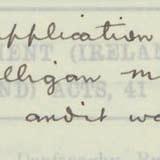 application
MENT (IRELAND
lligan m
ND) ACTS, 41
andit wa